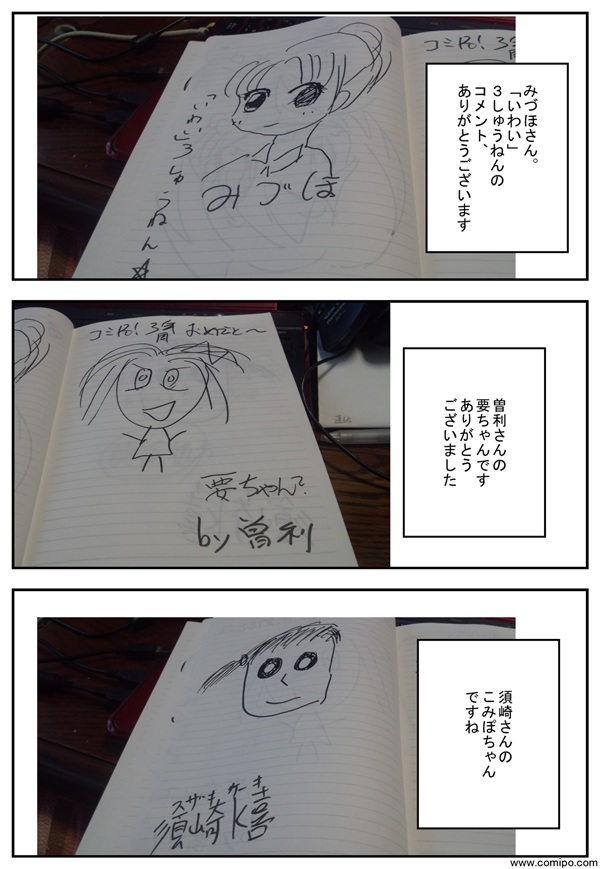 コミPo!3周
みづほさん。
「いわい」
3しゅうねんの
コメント、
ありがとうございます
いわい3しゅうねん☆
みづほ
コミPo!3周おめでと〜
曽利さんの
要ちゃんです
ありがとう
ございました
要ちゃん?
by曽利
須崎さんの
こみぽちゃん
ですね
スザキ
須崎
www.comipo.com